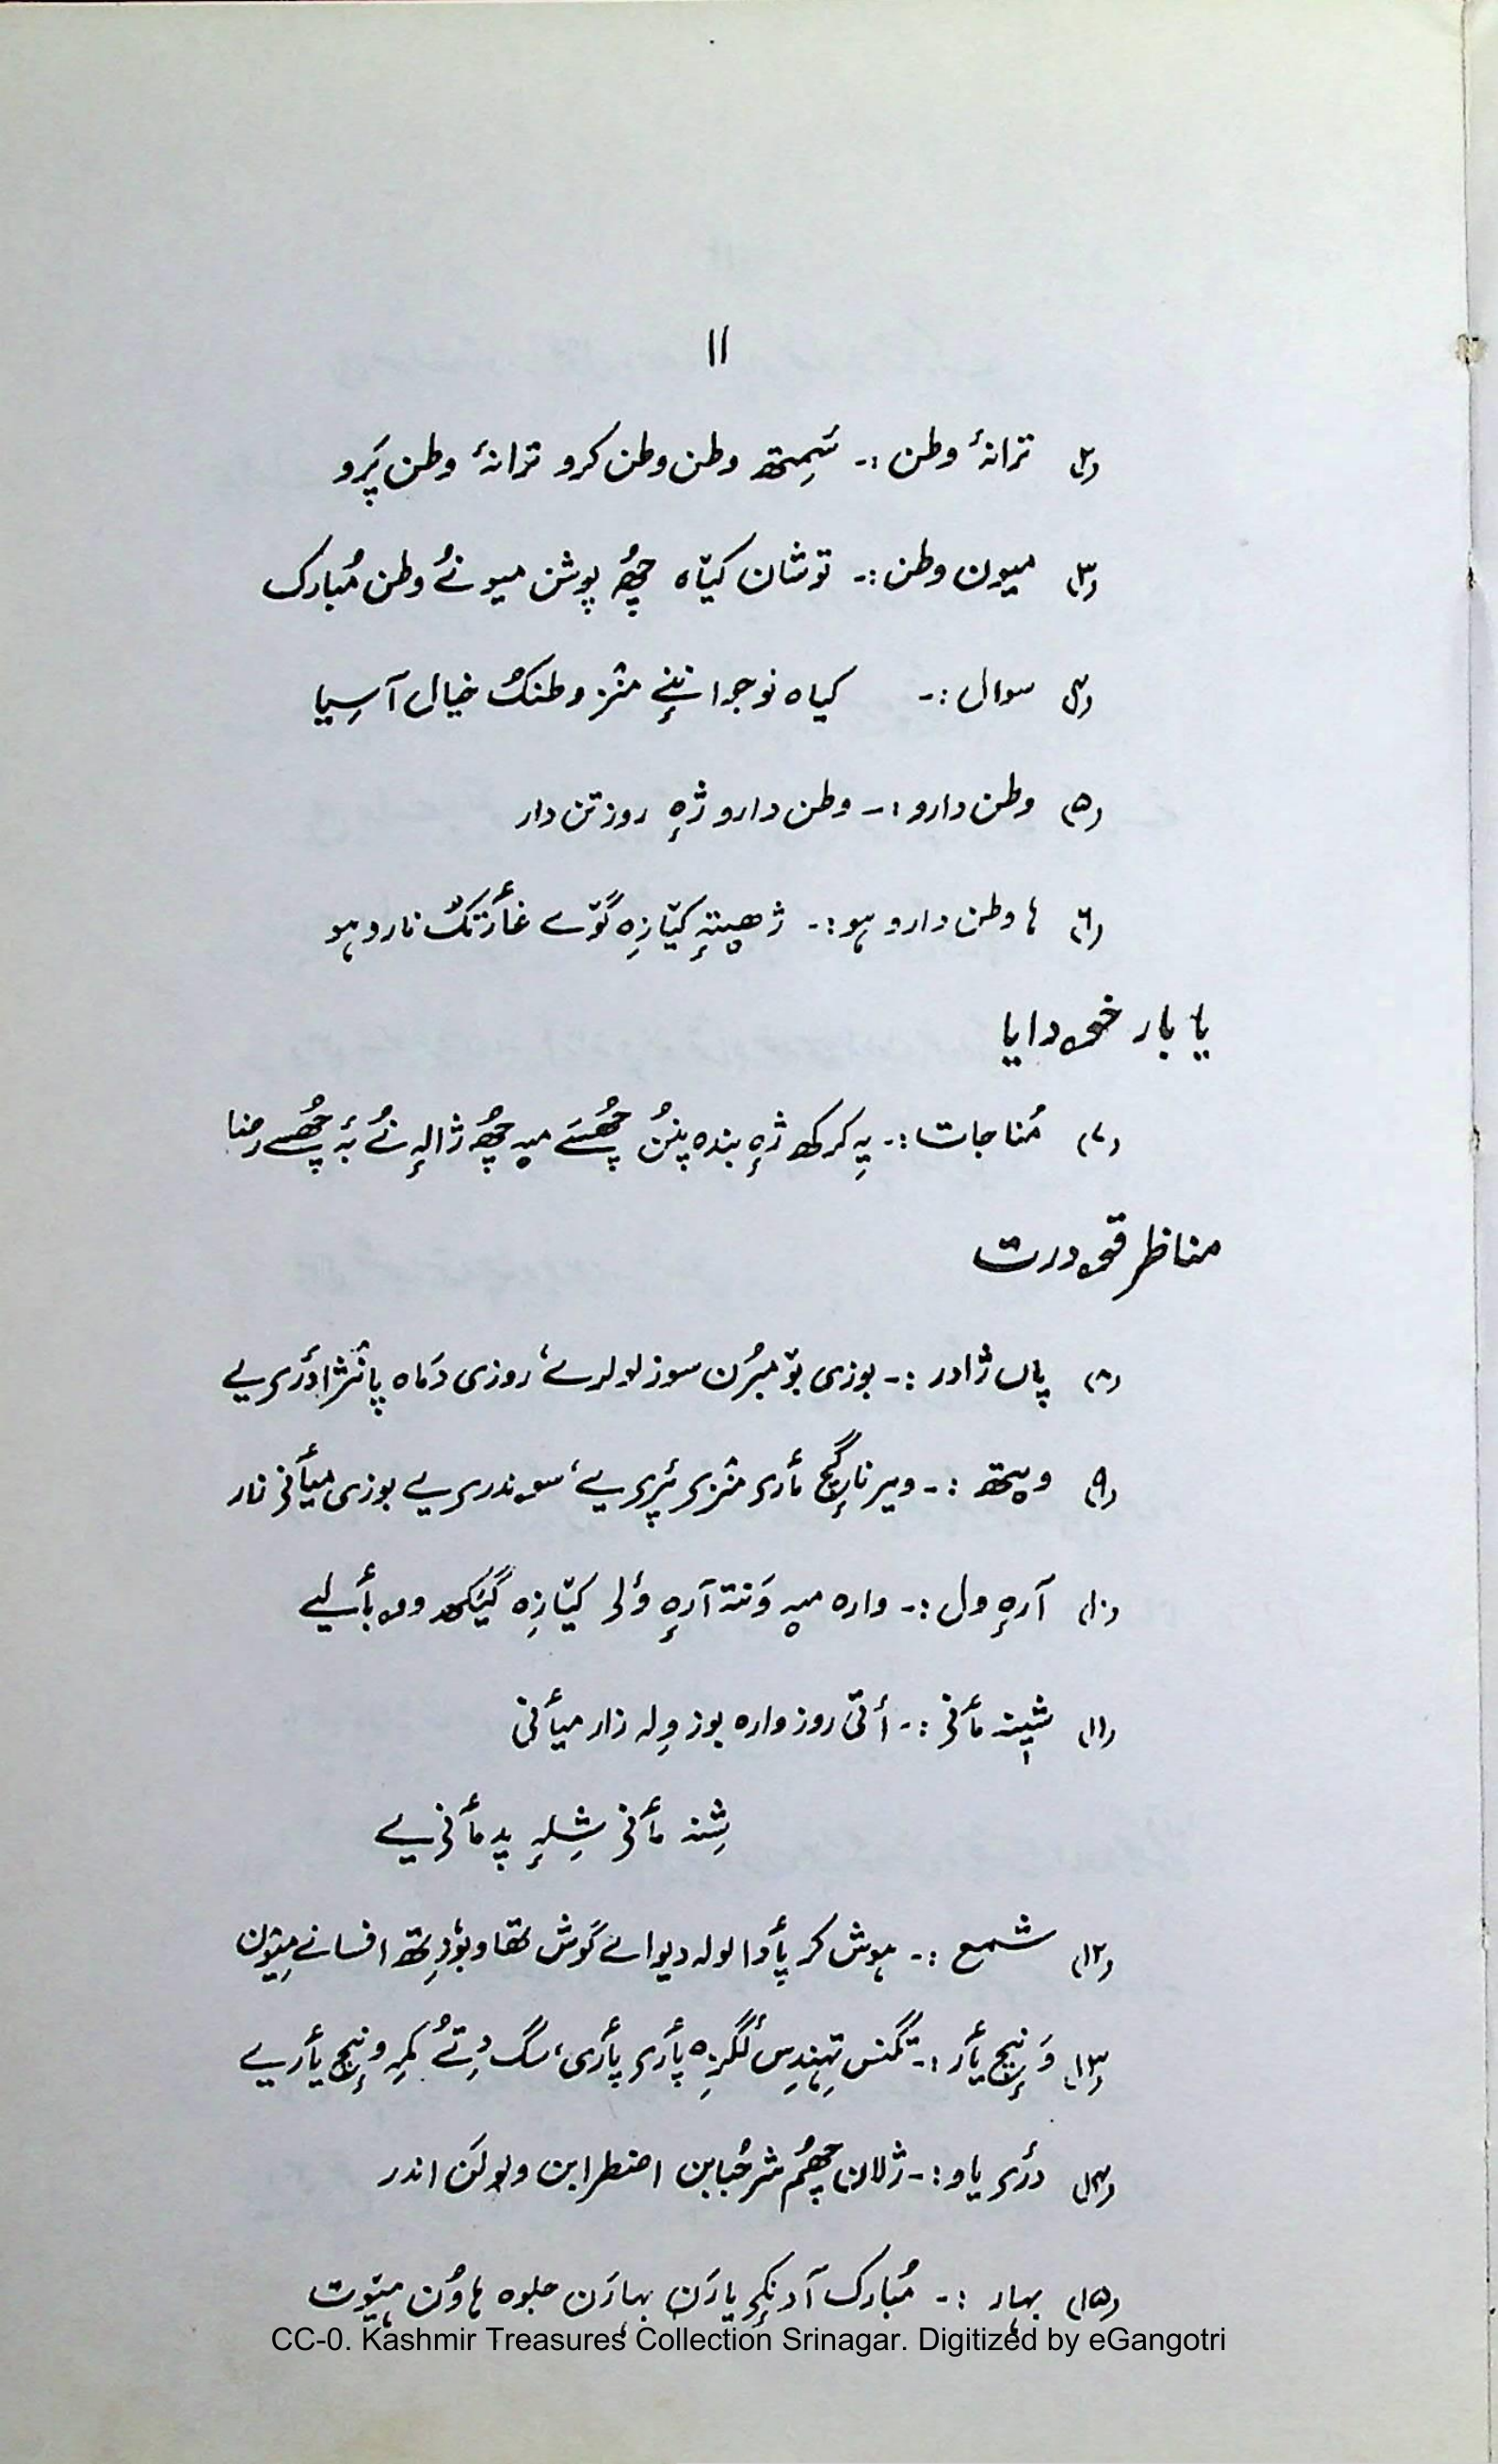 ۱۱
(۲) ترانۂ وطن :۔ سَمِتھ وطن وطن کرو ترانۂ وطن پَرو
(۳) میون وطن :۔ توشان کیّاہ چھُہ پوشن میونُے وطن مُبارک
(۴) سوال :۔ کیاہ نوجوا ننٕے منٛز وطنُک خیال آسِیا
(۵) وطن دارو :۔ وطن دارو ژٕہ روز تن دار
(۶) ہا وطن دارو ہو :۔ ژھیتہٕ کیّازِہ گوٚے غأرتُک نار دہو
یا بار خۄدایا
(۷) مُناجات :۔ یہِ کرکھ ژٕہ بندہ پننُ چھُسَے میہ چھُہ ژالہٕ نُے بہٕ چھُسے رضا
مناظر قۄدرت
(۸) پاں ژادر :۔ بوزی بوٚمبرُن سوز لولرے، روزی دَماہ پانٛژادٔری یے
(۹) ویتھ :۔ ویر ناگٕچ مأری منٛزی ٹرپری یے، سۄندری یے بوزی میأنی زار
(۱۰) آرہٕ ول :۔ وارہ میہ وَنتہ آرہٕ ؤلی کیّازِہ گیَکھ وۄں بأ لیے
(۱۱) شیٖنہ مأنی :۔ أتی روز وارہ بوز وِلہ زار میأنی
شِنہ مأنی شِلہٕ پد مأنی یے
(۱۲) شمع :۔ ہوش کر پأدا لولہ دیوانے گوش تھاو بوٗدِتھ افسانے میٛون
(۱۳) وَنٕچ یأر :۔ تگنس تہِندِس لگزِہ پأری پأری، سگ دِتُے کمہِ ونٕچ یأریے
(۱۴) دٔری یاو :۔ ژلان چھُم شر حُبابن اضطرابن ولولَن اندر
(۱۵) بہار :۔ مُبارک آدنٕکی یارَن بہارَن جلوہ ہاوُن ہیوٚت
CC-0. Kashmir Treasures Collection Srinagar. Digitized by eGangotri